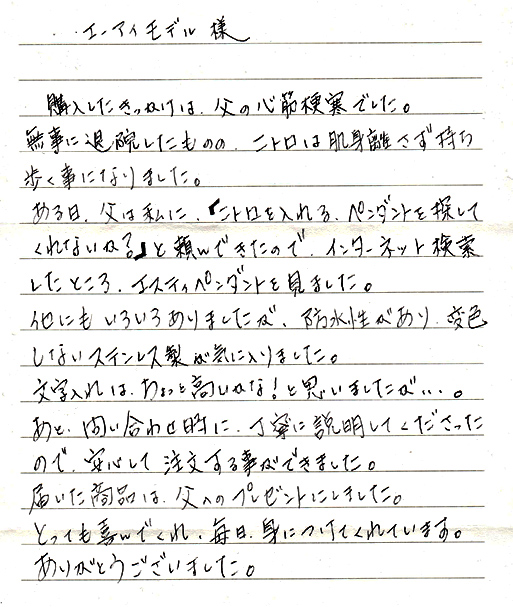 エーアイモデル 様
購入したきっかけは、父の心筋梗塞でした。
無事に退院したものの、ニトロは肌身離さず持ち
歩く事になりました。
ある日、父は私に、「ニトロを入れる、ペンダントを探して
くれないか?」と頼んできたので、インターネット検索
したところ、エスティペンダントを見ました。
他にもいろいろありましたが、防水性があり、変色
しないステンレス製が気に入りました。
文字入れは、ちょっと高いかな!と思いましたが…。
あと、問い合わせ時に、丁寧に説明してくださった
ので、安心して注文する事ができました。
届いた商品は、父へのプレゼントにしました。
とっても喜んでくれ、毎日、身につけてくれています。
ありがとうございました。